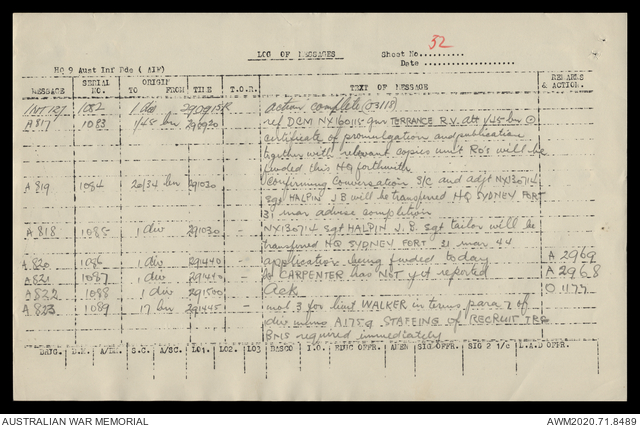 52
LOG OF MESSAGES Sheet No..........
Date ......................
HQ 9 Aust Inf Bde (AIF)
MESSAGE SERIAL NO. ORIGIN TO FROM TIME T.O.R. TEXT OF MESSAGE REMARKS & ACTION.
INT RT 1082 1 div 290915K action complete (O3118)
A817 1083 1/45 bn 290920 ref DCM NX160115 gnr TERRANCE R.V. att 1/45 bn
certificate of promulgation and publication
together with relevant copies unit RO's will be
funded this HQ forthwith
A819 1084 20/34 bn 291030 Confirming conversation S/C and adjt NX130714
sgt HALPIN J B will be transferred HQ SYDNEY FORT
31 mar advise completion
A818 1085 1 div 291030 NX130714 sgt HALPIN J.B. sgt tailor will be
transferred HQ SYDNEY FORT 31 mar 44
A820 1086 1 div 291440 application being funded today A2969
A821 1087 1 div 291440 CARPENTER has NOT yet reported A2968
A822 1088 1 div 291500 Ack O1177
A823 1089 17 bn 291445 3 for lieut WALKER in terms para 7 of
div memo A1759 STAFFING of RECRUIT TRG
BNS required immediately
DAUG. B.M. A/BM. S.C. A/SC. LO1. LO2. LO3 BASCO I.O. EDUC OFFR. AMEN SIG.OFFR. SIG 2 i/c L.A.D OFFR.
AUSTRALIAN WAR MEMORIAL AWM2020.71.8489